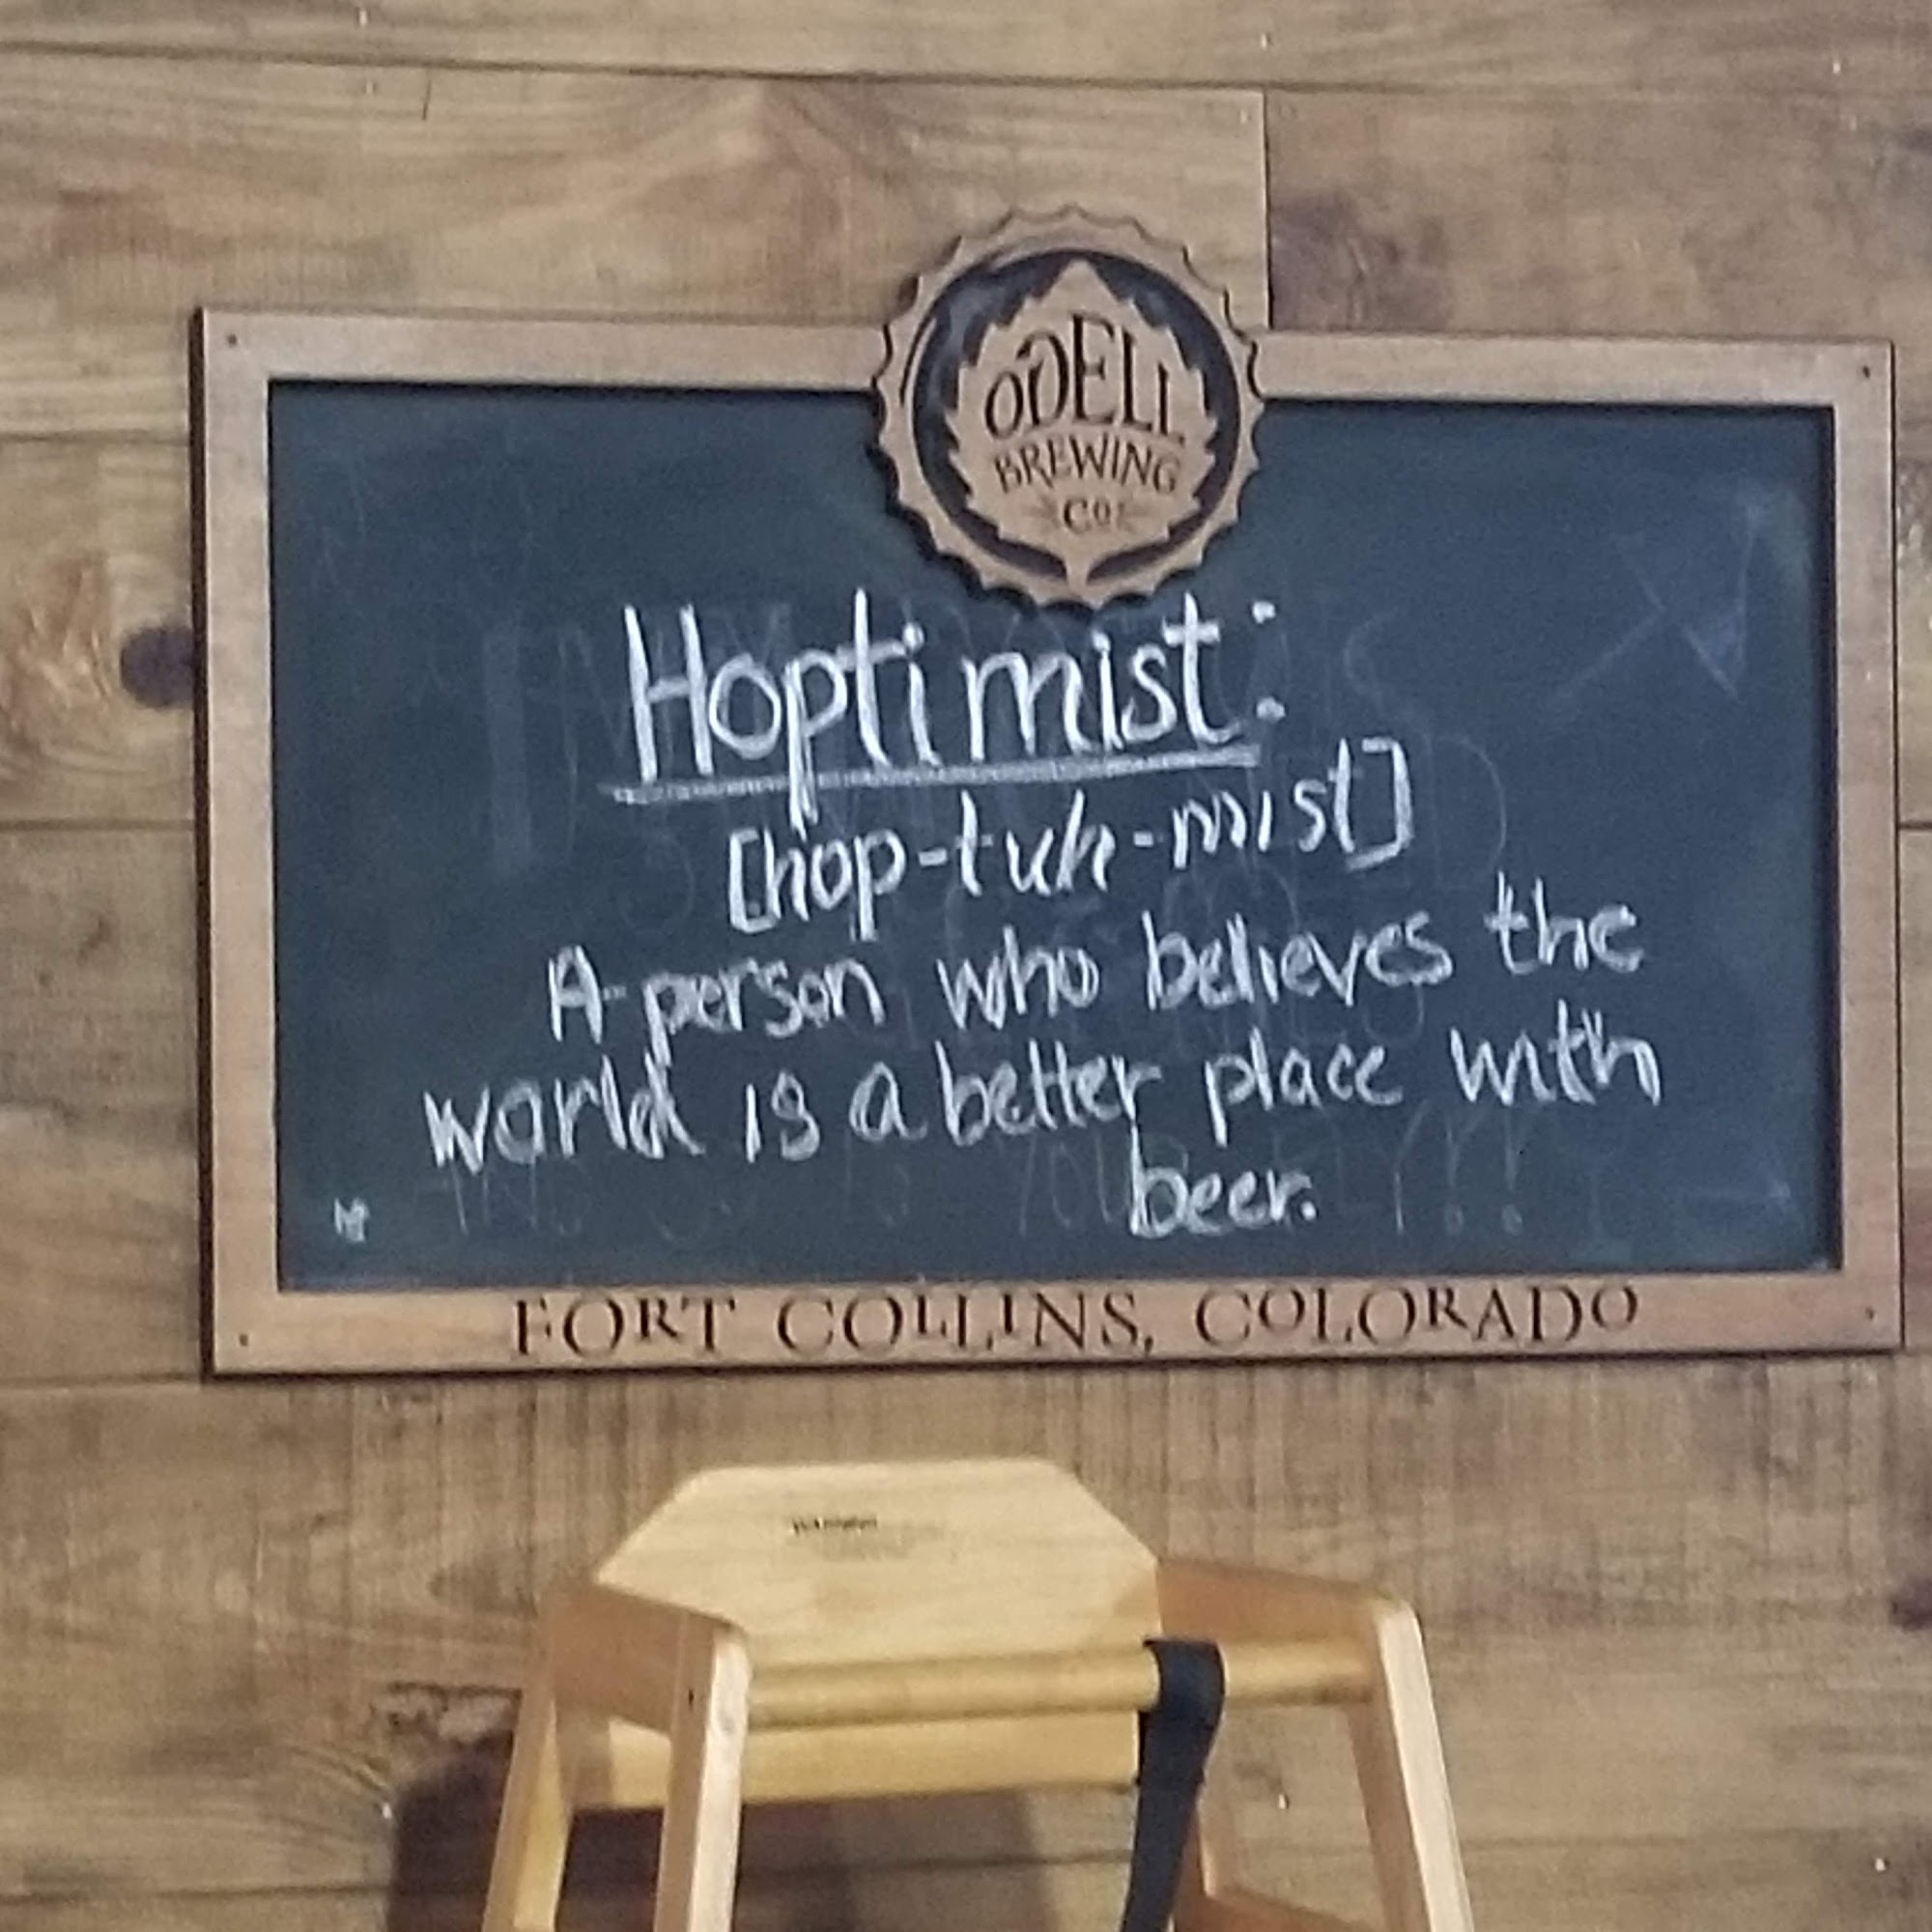 ODELL
BREWING
CO
Hoptimist:
[hop-tuh-mist]
A person who believes the
world is a better place with
beer.
FORT COLLINS, COLORADO
WARNING